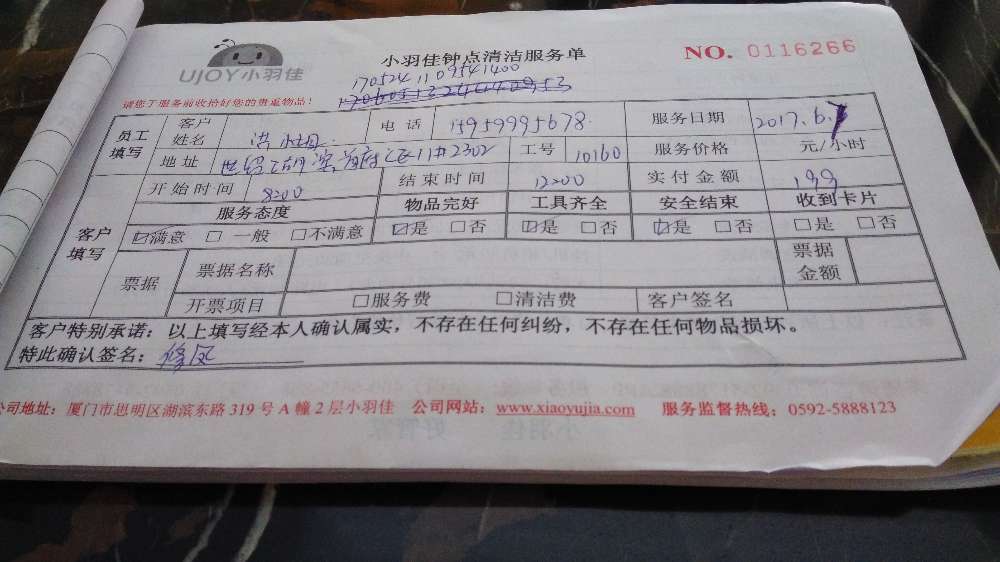 UJOY小羽佳
小羽佳钟点清洁服务单
NO. 0116266
1705241109541400
请您于服务前收拾好您的贵重物品!
员工填写 客户姓名 洪 电话 15959995678. 服务日期 2017.6.
地址 世纪湖滨 2302 工号 10160 服务价格 元/小时
客户填写 开始时间 8200 结束时间 12200 实付金额 199
服务态度 物品完好 工具齐全 安全结束 收到卡片
☑满意 □一般 □不满意 ☑是 □否 ☑是 □否 ☑是 □否 □是 □否
票据 票据名称 票据金额
开票项目 □服务费 □清洁费 客户签名
客户特别承诺：以上填写经本人确认属实，不存在任何纠纷，不存在任何物品损坏。
特此确认签名：
公司地址：厦门市思明区湖滨东路 319 号 A 幢 2 层小羽佳 公司网站：www.xiaoyujia.com 服务监督热线：0592-5888123